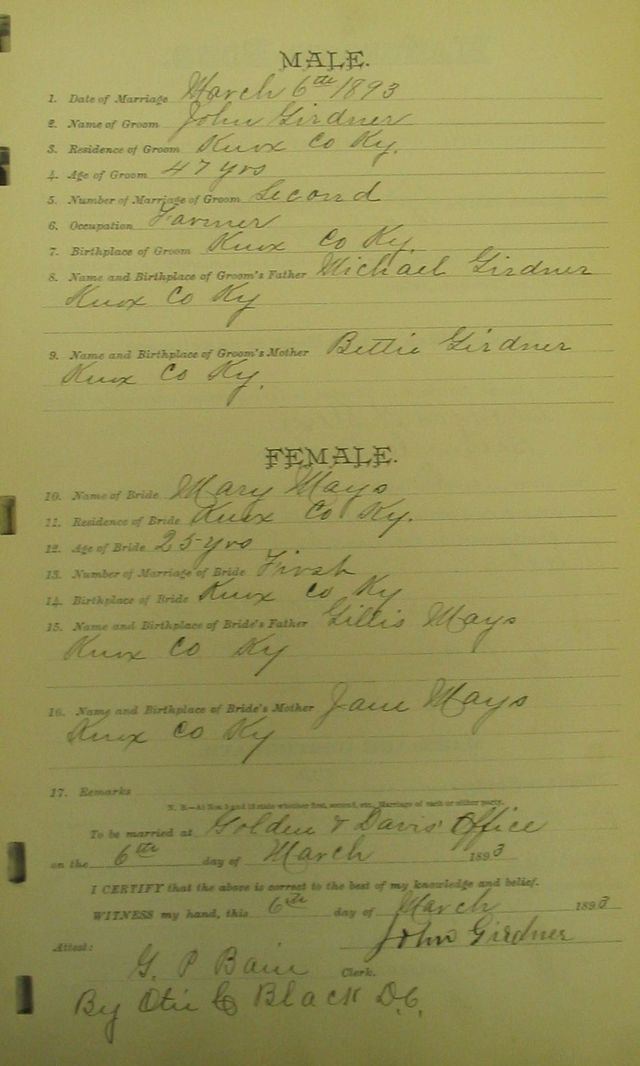 MALE.
1. Date of Marriage March 6th 1893
2. Name of Groom John Girdner
3. Residence of Groom Knox Co Ky.
4. Age of Groom 47 yrs
5. Number of Marriage of Groom Second
6. Occupation Farmer
7. Birthplace of Groom Knox Co Ky.
8. Name and Birthplace of Groom's Father Michael Girdner
Knox Co Ky
9. Name and Birthplace of Groom's Mother Bettie Girdner
Knox Co Ky.
FEMALE.
10. Name of Bride Mary Mays
11. Residence of Bride Knox Co Ky.
12. Age of Bride 25 yrs
13. Number of Marriage of Bride First
14. Birthplace of Bride Knox Co Ky
15. Name and Birthplace of Bride's Father Gillis Mays
Knox Co Ky
16. Name and Birthplace of Bride's Mother Jane Mays
Knox Co Ky
17. Remarks
N. B.—At Nos. 5 and 13 state whether first, second, etc., Marriage of each or either party.
To be married at Golden & Davis' Office
on the 6th day of March 1893
I CERTIFY that the above is correct to the best of my knowledge and belief.
WITNESS my hand, this 6th day of March 1893
John Girdner
Attest:
G. P Bain Clerk.
By Otis C Black D.C.